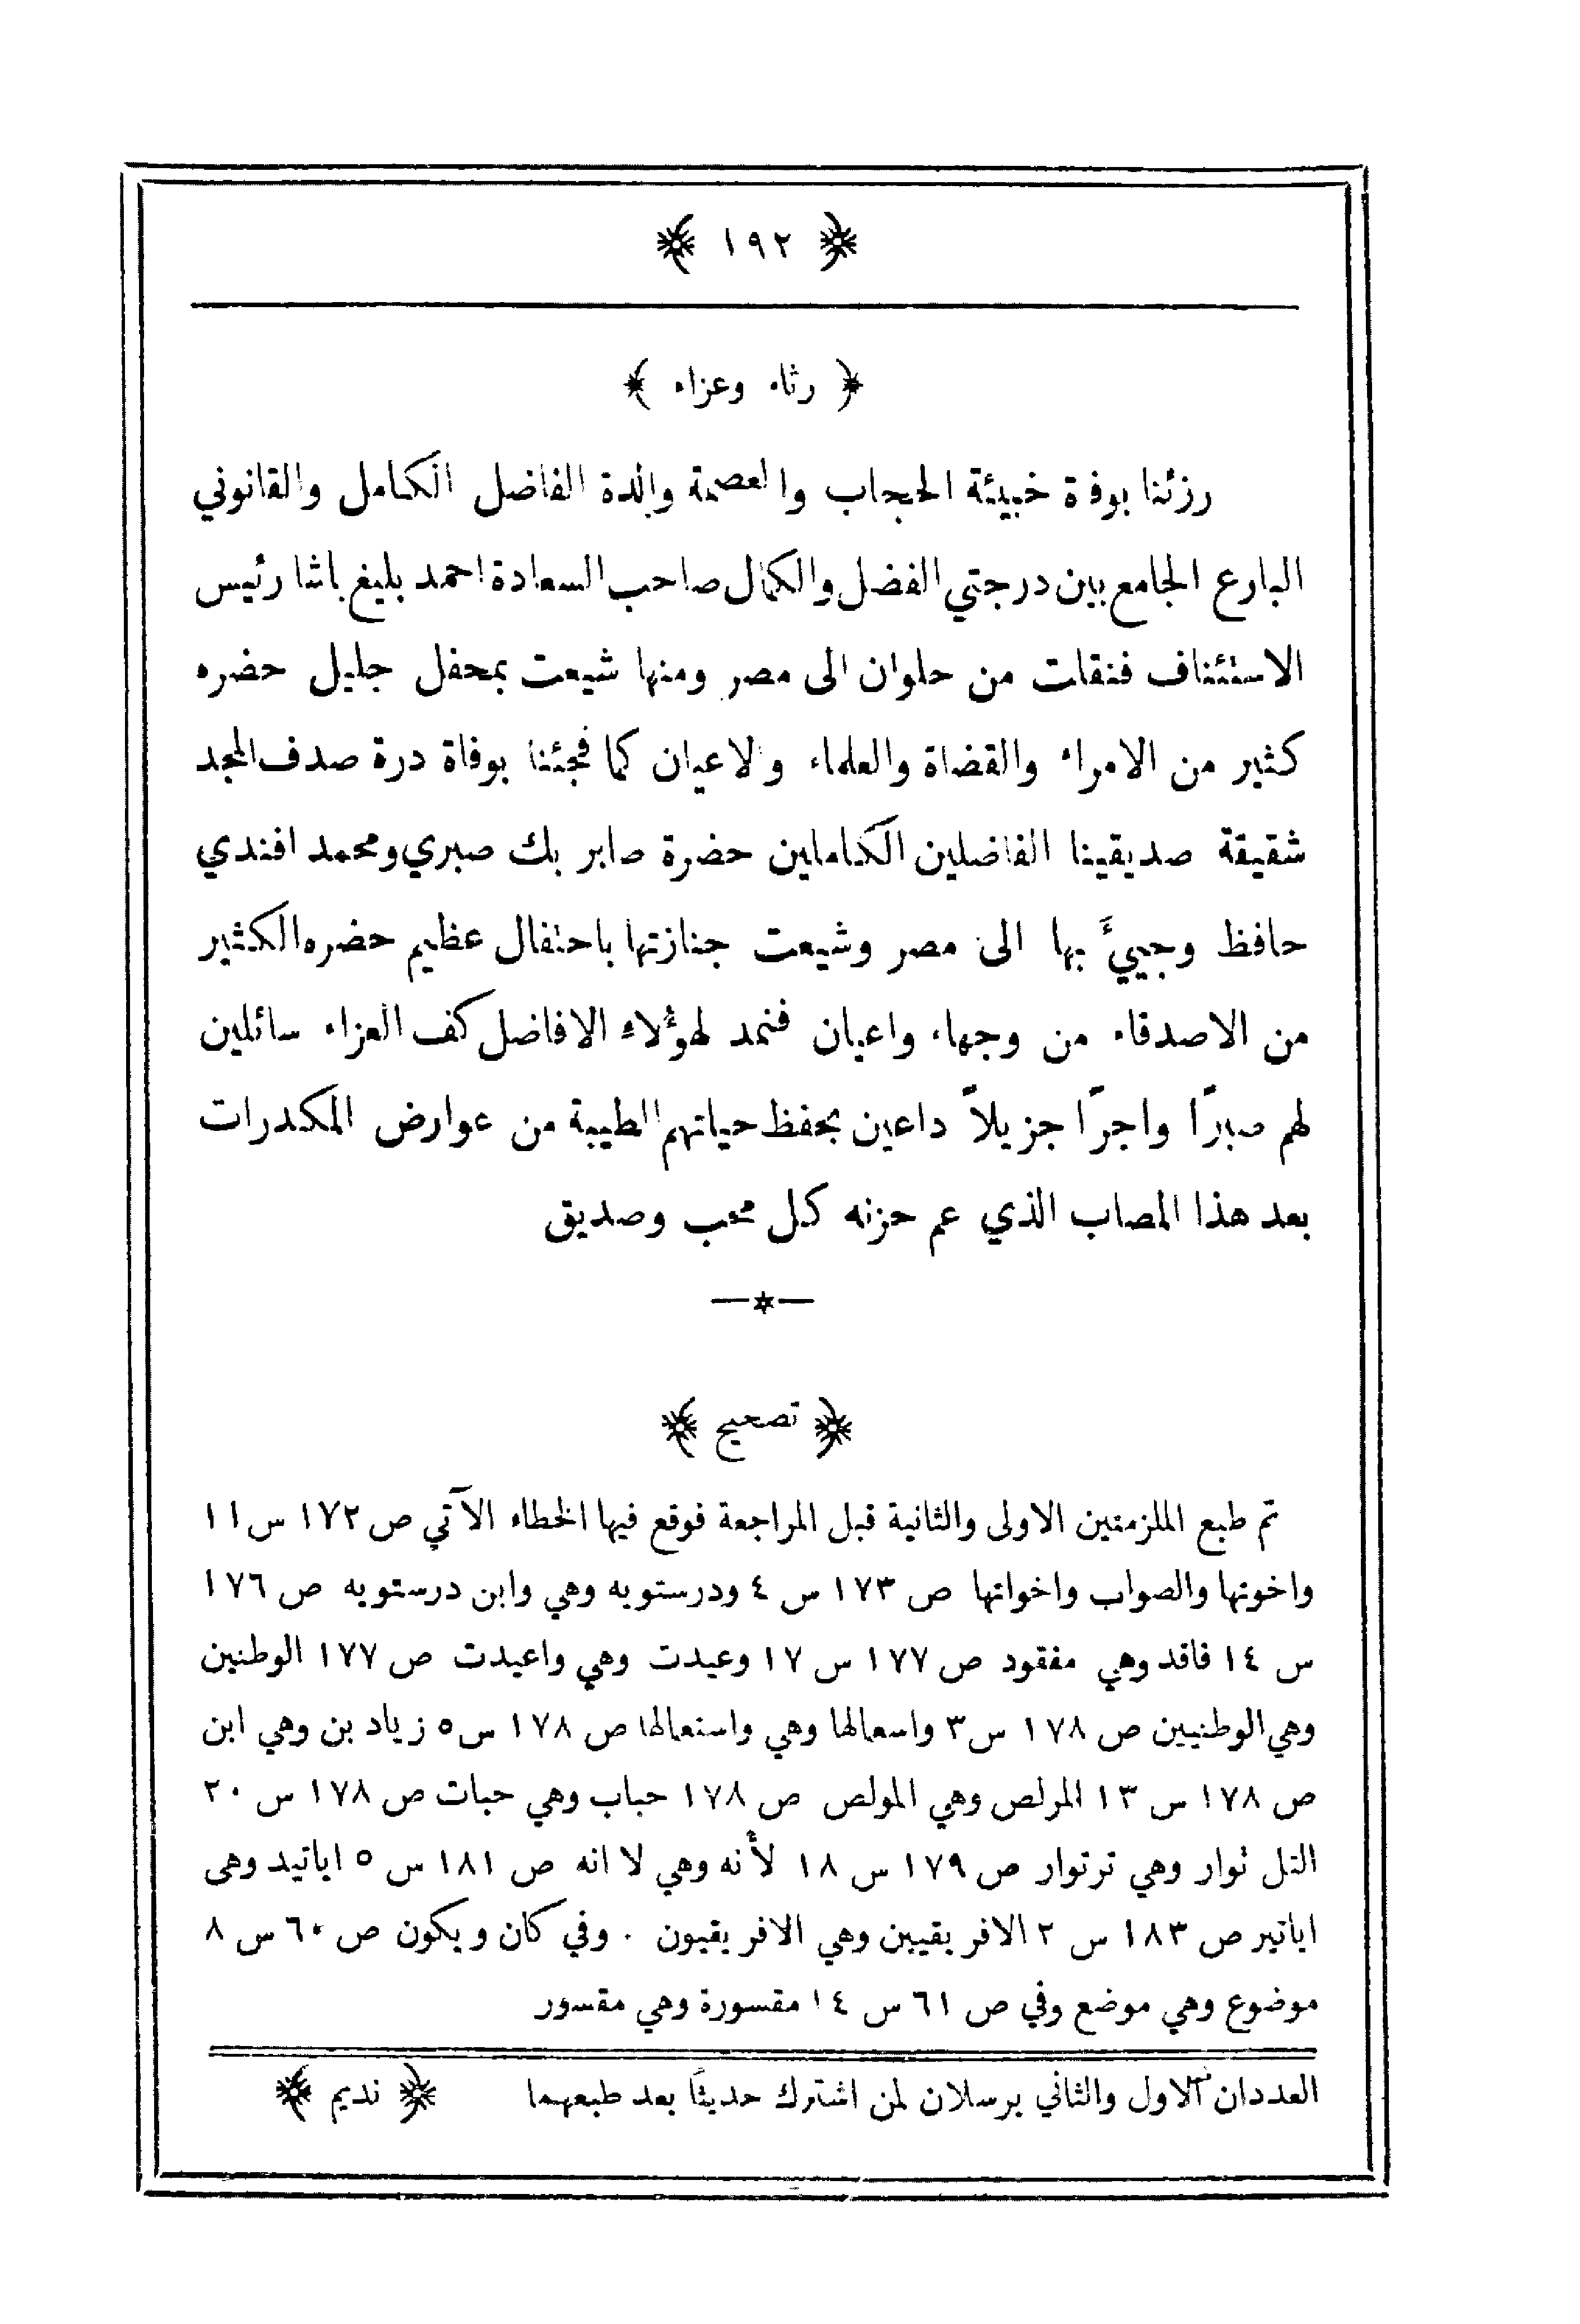 ﴿ ١٩٢ ﴾
﴿ رثاء وعزاء ﴾
رزئنا بوفاة خبيئة الحجاب والعصمة والدة الفاضل الكامل والقانوني
البارع الجامع بين درجتي الفضل والكمال صاحب السعادة احمد بليغ باشا رئيس
الاستئناف فنقلت من حلوان الى مصر ومنها شيعت بمحفل جليل حضره
كثير من الامراء والقضاة والعلماء والاعيان كما فجئنا بوفاة درة صدف المجد
شقيقة صديقينا الفاضلين الكاملين حضرة صابر بك صبري ومحمد افندي
حافظ وجييءَ بها الى مصر وشيعت جنازتها باحتفال عظيم حضره الكثير
من الاصدقاء من وجهاء واعيان فنمد لهؤلاء الافاضل كف العزاء سائلين
لهم صبرًا واجرًا جزيلاً داعين بحفظ حياتهم الطيبة من عوارض المكدرات
بعد هذا المصاب الذي عم حزنه كل محب وصديق
﴿ تصحيح ﴾
تم طبع الملزمتين الاولى والثانية قبل المراجعة فوقع فيها الخطاء الآتي ص ١٧٢ س ١١
واخوتها والصواب واخواتها ص ١٧٣ س ٤ ودرستويه وهي وابن درستويه ص ١٧٦
س ١٤ فاقد وهي مفقود ص ١٧٧ س ١٧ وعيدت وهي واعيدت ص ١٧٧ الوطنين
وهي الوطنيين ص ١٧٨ س ٣ واسعالها وهي واستعالها ص ١٧٨ س ٥ زياد بن وهي ابن
ص ١٧٨ س ١٣ المرلص وهي المولص ص ١٧٨ حباب وهي حبات ص ١٧٨ س ٢٠
التل ثوار وهي ترتوار ص ١٧٩ س ١٨ لأنه وهي لا انه ص ١٨١ س ٥ اباتيد وهى
اباتير ص ١٨٣ س ٢ الافريقيين وهي الافريقيون . وفي كان ويكون ص ٦٠ س ٨
موضوع وهي موضع وفي ص ٦١ س ١٤ مقسورة وهي مقسور
العددان الاول والثاني يرسلان لمن اشترك حديثًا بعد طبعهما ﴿ نديم ﴾